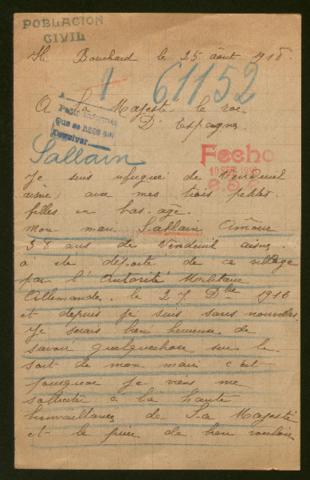 POBLACION
CIVIL
H. Bouchard le 25 août 1918.
1 61152
A Sa Majesté le roi
D'Espagne
Sallain
Fecho
Je suis refugiée de Vendeuil
aisne avec mes trois petites
filles en bas-âge.
Mon mari Sallain
38 ans de Vendeuil aisne.
a été déporté de ce village
par l'Autorité Militaire
Allemande. le 27 Dbre 1916
et depuis je suis sans nouvelles
Je serais bien heureuse de
savoir quelquechose sur le
sort de mon mari c'est
pourquoi je viens me
solliciter à la haute
bienveillance de Sa Majesté
et le prier de bien vouloir